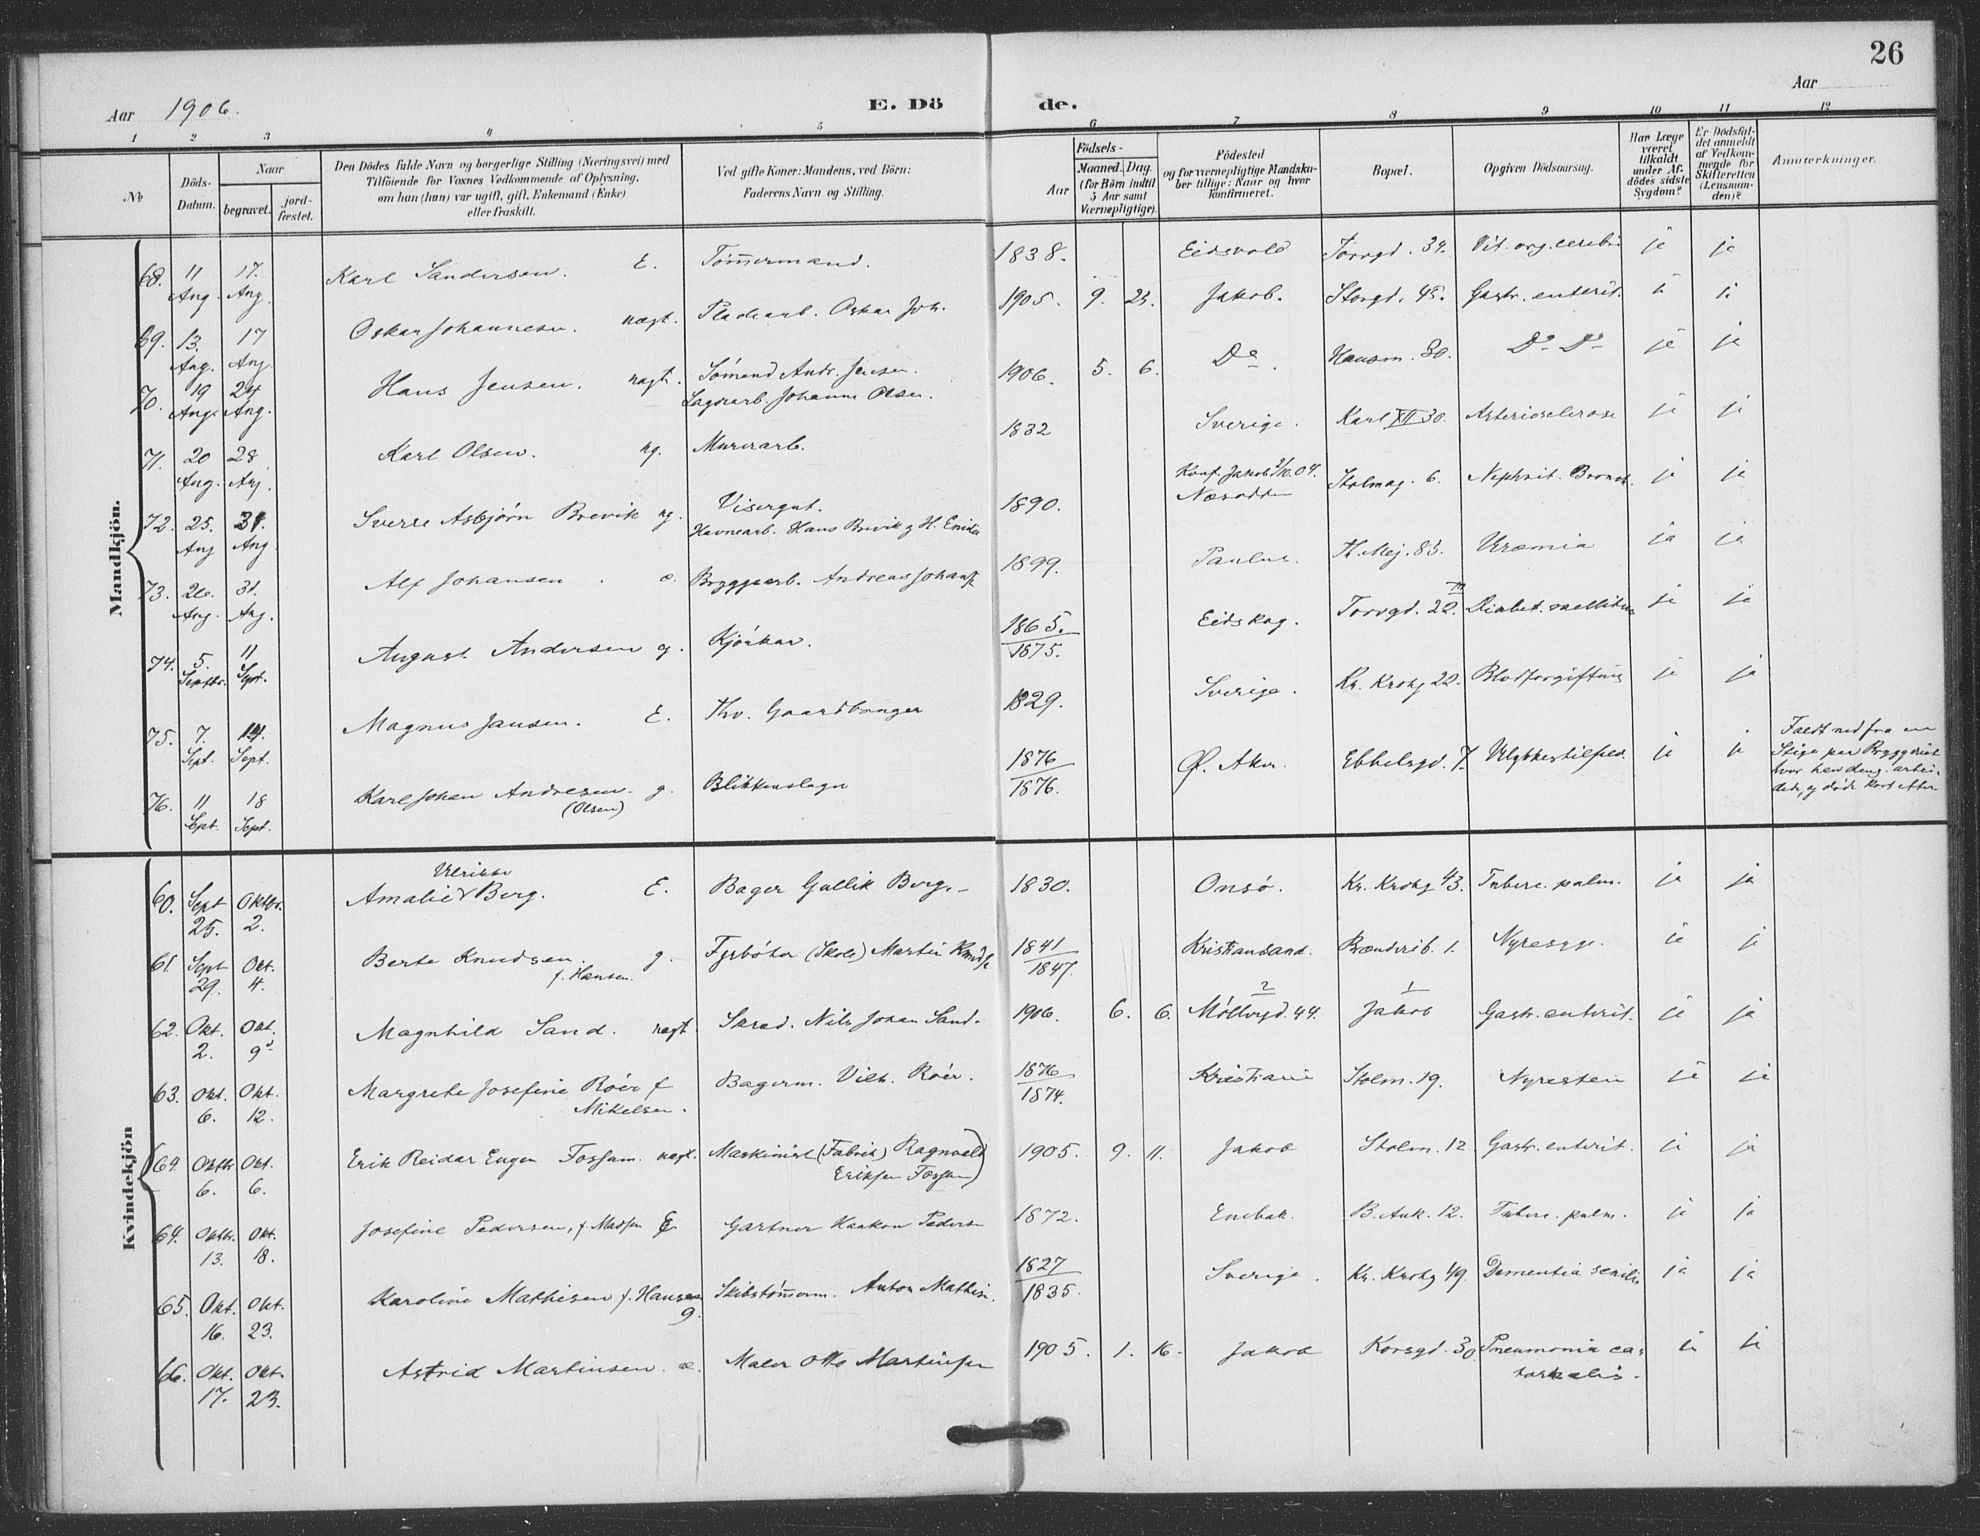 26
Aar 1906. E. Dö de. Aar
1 2 3 4 5 6 7 8 9 10 11 12
No
Döds-Datum.
Naar
begravet.
jord-fæstet.
Den Dödes fulde Navn og borgerlige Stilling (Næringsvei) med
Tilföiende for Voxnes Vedkommende af Oplysning,
om han (hun) var ugift, gift, Enkemand (Enke)
eller fraskilt.
Ved gifte Koner: Mandens, ved Börn:
Faderens Navn og Stilling.
Födsels-
Aar
Maaned. Dag.
(for Börn indtil
5 Aar samt
Værnepligtige).
Födested
og for værnepligtige Mandskaber tillige: Naar og hvor
konfirmeret.
Bopæl.
Opgiven Dödsaarsag.
Har Læge
været
tilkaldt
under Afdödes sidste
Sygdom?
Er Dödsfaldet anmeldt
af Vedkommende for
Skifteretten
(Lensmanden)?
Anmerkninger.
Mandkjön.
68. 11 Aug. 17. Aug. Karl Sandersen. E. Tömmermand. 1838. Eidsvold Torvgd. 34. Vit. org. cerebri ja ja
69. 13. Aug. 17 Aug. Oskar Johannesen. uægt. Pladearb. Oskar Joh. 1905. 9. 25. Jakob. Storgd. 45. Gastr. enterit. ja
70. 19 Aug. 24 Aug. Hans Jensen. uægt. Sömand Andr. Jensen. Lagerarb. Johanne Olsen. 1906. 5. 6. Do Hausm. 80. Do Do ja ja
71. 20 Aug. 28 Aug. Karl Olsen. ug. Murerarb. 1832 Sverige. Karl XII 30. Arteriosclerose ja ja
72. 25. Aug 31. Aug. Sverre Asbjörn Brevik ug. Visergut. Havnearb. Hans Brevik g H. 1890. Konf. Jakob 04. Næsodden Stolmag. 6. Nephrit. Bronch. ja ja
73. 26. Aug. 31. Aug. Alf Johansen. æ. Bryggearb. Andreas Johans. 1899. Paulus. Th. Mej. 83. Uræmia ja ja
74. 5. Septbr. 11 Sept. August Andersen g. Kjörkar. 1865. 1875. Eidskog. Torvgd. 22. Diabet. mellitus ja ja
75. 7. Sept. 14. Sept. Magnus Jansen. E. Fhv. Gaardbruger 1829. Sverige. Kr. Krohg 22. Blodforgiftning ja ja
76. 11 Sept. 18 Sept. Karl Johan Andresen. g. (Olsen) Blikkenslager 1876 1876. Ø. Aker Ebbelsgd. 7. Ulykkestilfeld. ja ja
Faldt ned fra en
Stige paa Bryggeriet
hvor han arbeidede, og döde kort efter
Kvindekjön
60. Sept 25. Oktbr. 2. Amalie Ulrikke Berg. E. Bager Gullik Berg. 1830. Onsö. Kr. Krohg 43. Tuberc. pulm. ja ja
61. Sept 29. Okt. 4. Berte Knudsen. f. Hansen. g. Fyrböter (Skole) Martin Knuds. 1841 1847. Kristiansand. Brenderib. 1. Nyresyge. ja ja
62. Okt. 2. Okt. 9. Magnhild Sand. uægt. Skræd. Nils Johan Sand. 1906. 6. 6. 2 Möllergd. 44. 1 Jakob Gastr. enterit. ja ja
63. Okt. 6. Okt. 12. Margrete Josefine Röer f Mikelsen. Bagerm. Vilh. Röer. 1876 1874. Kristiania Stolm. 19. Nyresten ja ja
64. Oktbr 6. Okt. 6. Erik Reidar Eugen Fossum. uægt. Maskinist (Fabrik) Ragnvald Eriksen Fossum) 1905. 9. 11. Jakob Stolm. 12 Gastr. enterit. ja ja
64. Oktbr. 13. Okt. 18. Josefine Pedersen, f. Madsen Gartner Haakon Peders 1872. Enebak. B. Ank. 12. Tuberc. pulm. ja ja
65. Okt. 16. Okt. 23. Karoline Mathisen f. Hansen g. Skibstömmerm. Anton Mathis. 1827 1835. Sverige. Kr. Krohg 49. Dementia senilis ja ja
66. Okt. 17. Okt. 23. Astrid Martinsen. æ. Maler Otto Martinsen 1905. 1. 16. Jakob Korsgd. 30. Pneumonia catarrhalis. ja ja